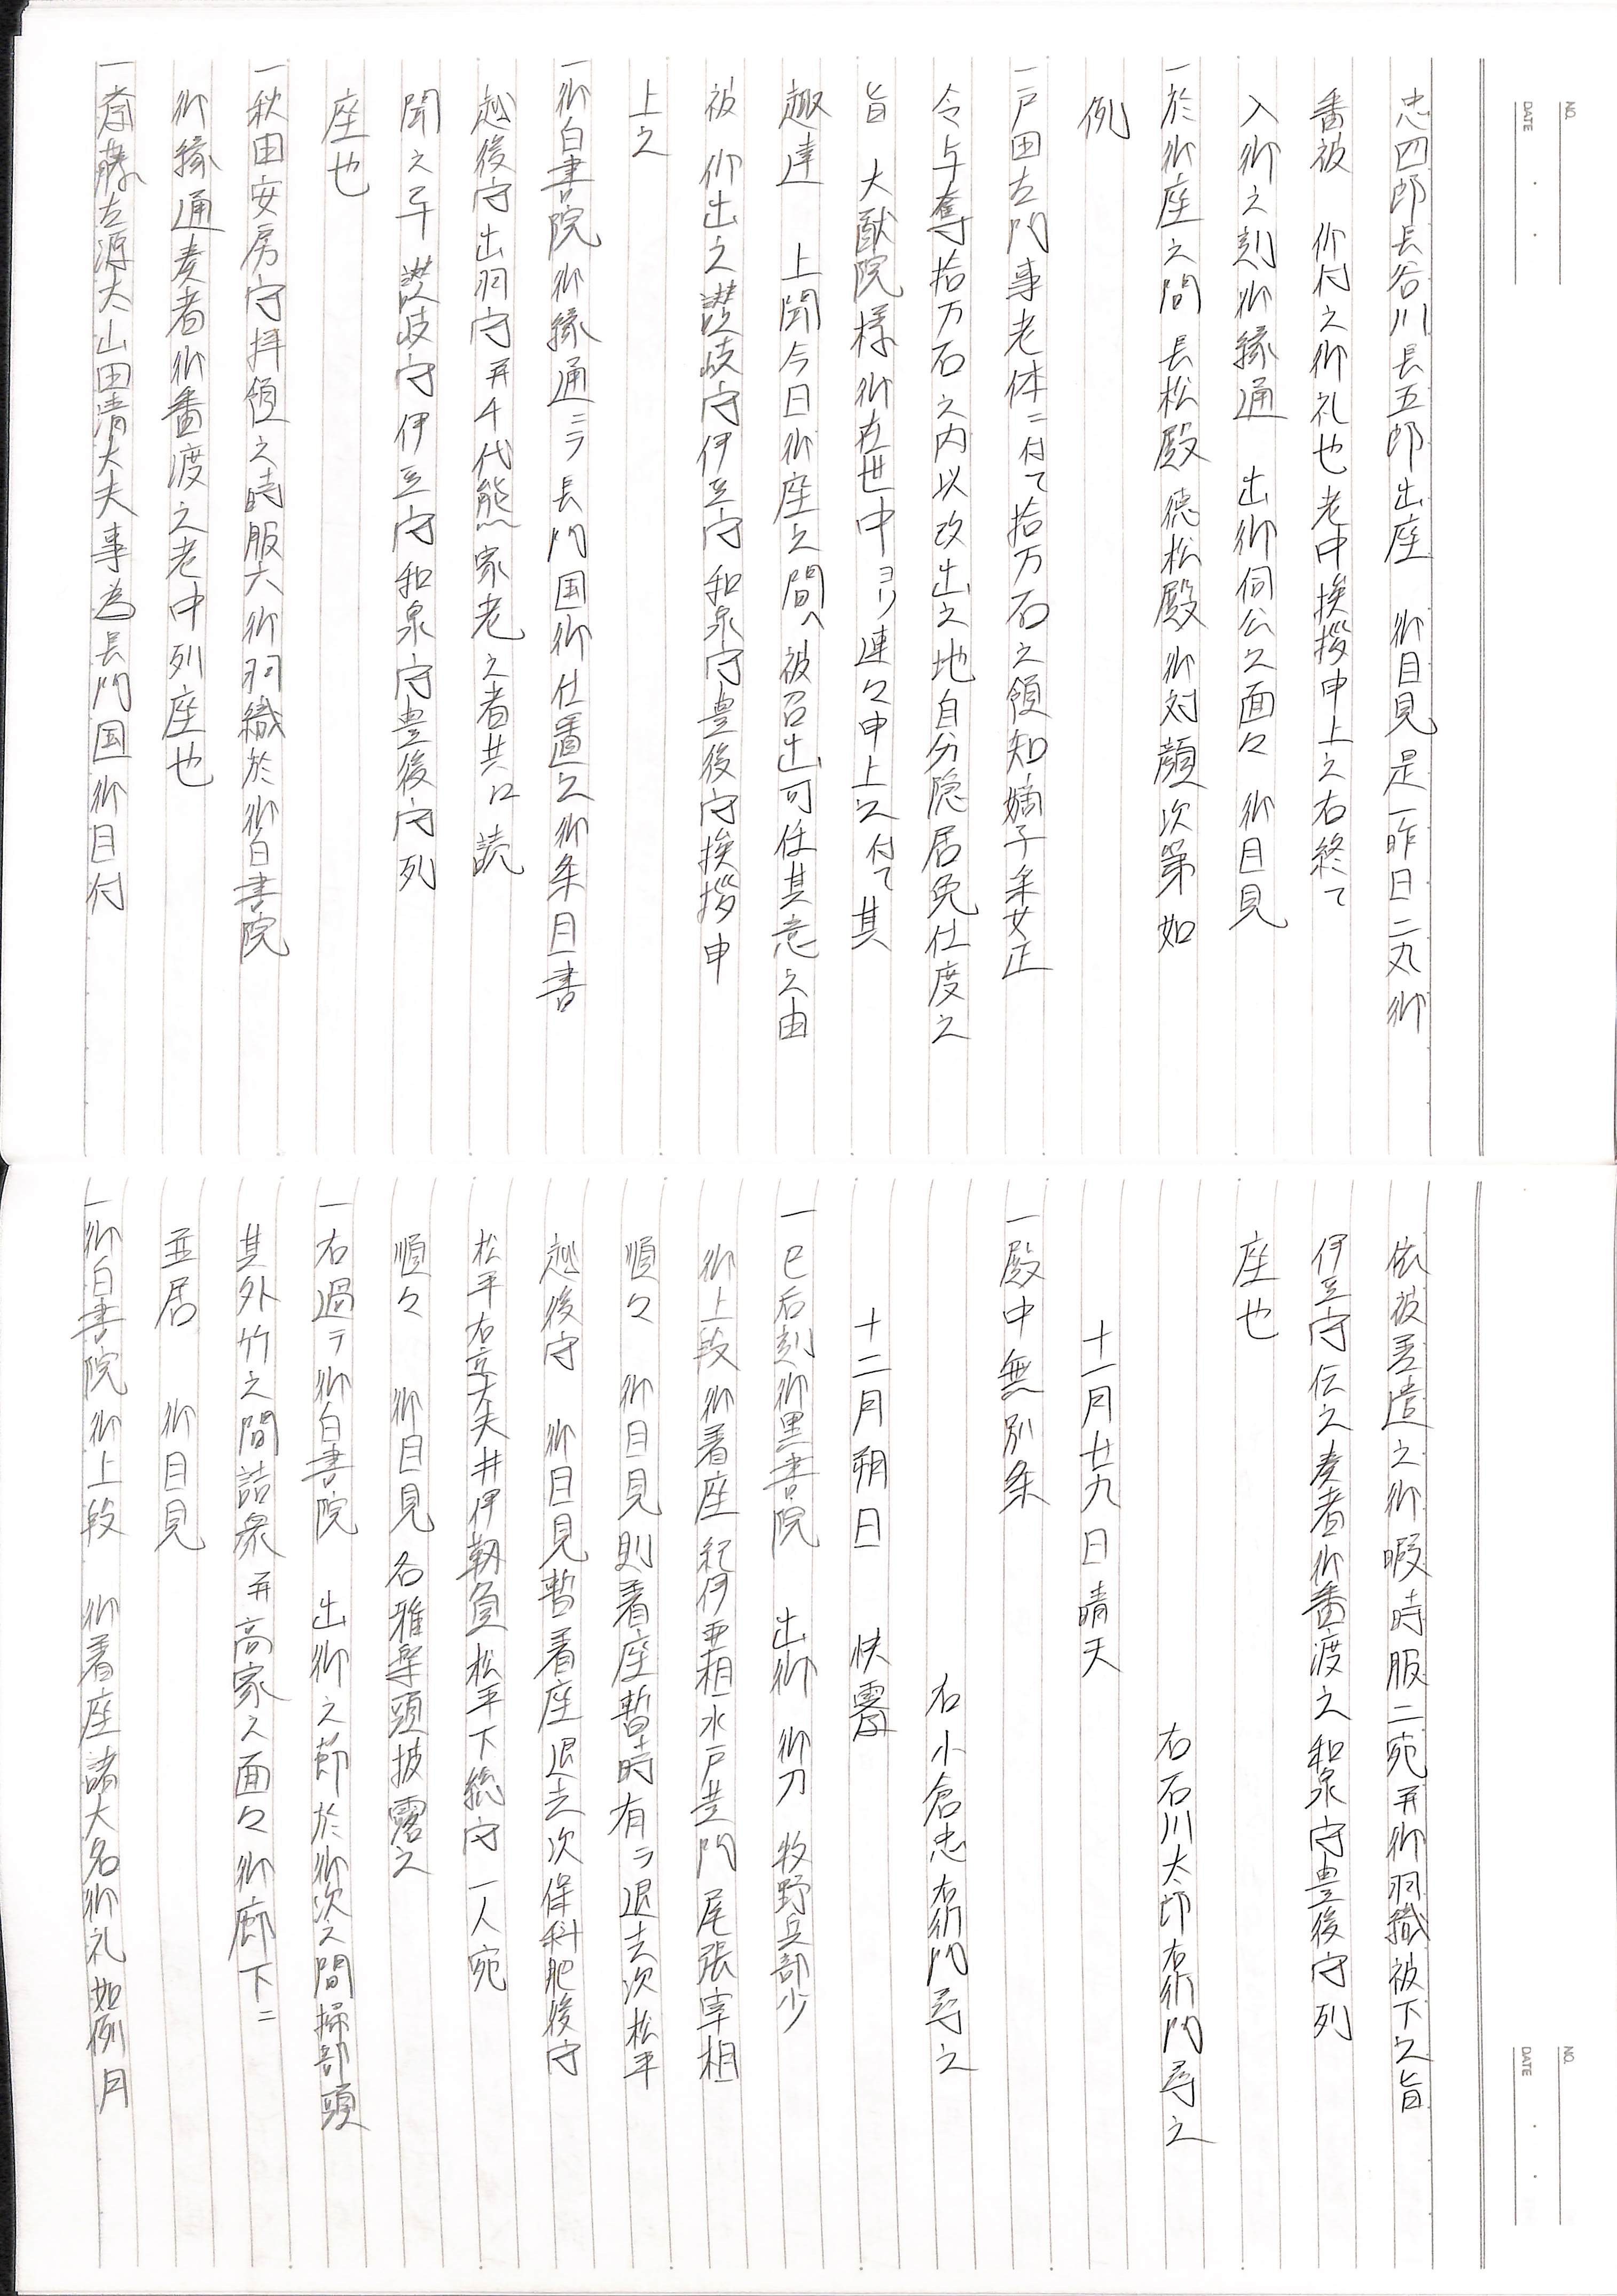 NO.
DATE
忠四郎長谷川長五郎出座 御目見是一昨日二丸御
番被 仰付之御礼也老中挨拶申上之右終て
入御之刻御縁通 出御伺公之面々 御目見
一於御座之間 長松殿 徳松殿 御対顔次第如
例
一戸田左門事老体ニ付て拾万石之領知嫡子采女正
令与奪拾万石之内以改出之地自分隠居免仕度之
旨 大猷院様御在世中ヨリ連々申上之付て其
趣達 上聞今日御座之間へ被召出可任其意之由
被 仰出之讃岐守伊豆守和泉守豊後守挨拶申
上之
一御白書院御縁通ニテ長門国御仕置之御条目書
越後守出羽守并千代熊家老之者共口読
聞之于 讃岐守伊豆守和泉守豊後守列
座也
一秋田安房守拝領之時服六御羽織於御白書院
御縁通奏者御番渡之老中列座也
一斎藤左源太山田清大夫事為長門国御目付
NO.
DATE
依被差遣之御暇時服二宛并御羽織被下之旨
伊豆守伝之奏者御番渡之和泉守豊後守列
座也
右石川太郎右衛門尋之
十一月廿九日晴天
一殿中無別条
右小倉忠右衛門尋之
十二月朔日 快霽
一巳后刻御黒書院 出御 御刀 牧野兵部少
御上段御着座紀伊亜相水戸黄門尾張宰相
順々 御目見則着座暫時有テ退去次松平
越後守 御目見暫着座退去次保科肥後守
松平右京大夫井伊靱負松平下総守一人宛
順々 御目見各雅楽頭披露之
一右過テ御白書院 出御之節於御次之間掃部頭
其外竹之間詰衆并高家之面々御廊下ニ
並居 御目見
一御白書院御上段 御着座諸大名御礼如例月